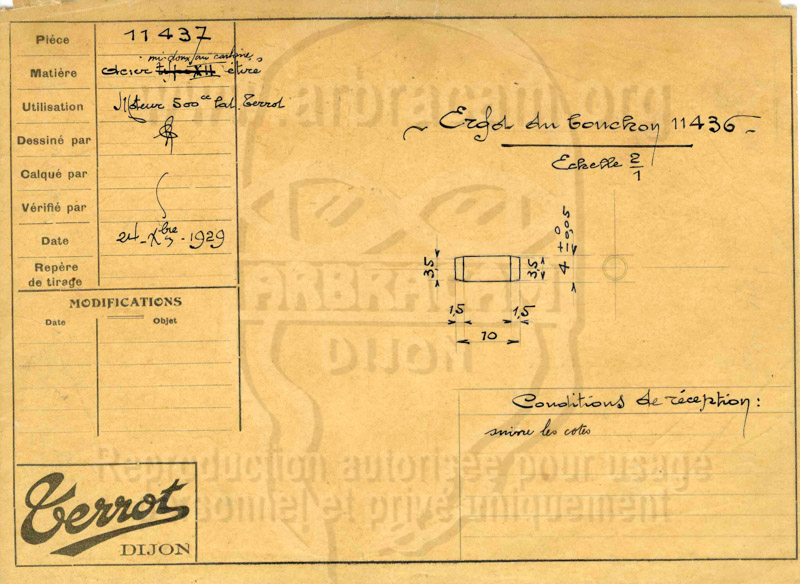 Pièce 11437
mi-doux au carbone
Matière acier type XII étiré
Utilisation Moteur 500cc lat. Terrot
Dessiné par
Calqué par
Vérifié par
Date 24-Xbre-1929
Repère
de tirage
MODIFICATIONS
Date Objet
Terrot
DIJON
~ Ergot du bouchon 11436 ~
Echelle 2/1
35
35
4 ± 0 005
1,5 1,5
10
Conditions de réception :
suivre les cotes
www.arbracam.org
ARBRACAM
DIJON
Reproduction autorisée pour usage
personnel et privé uniquement